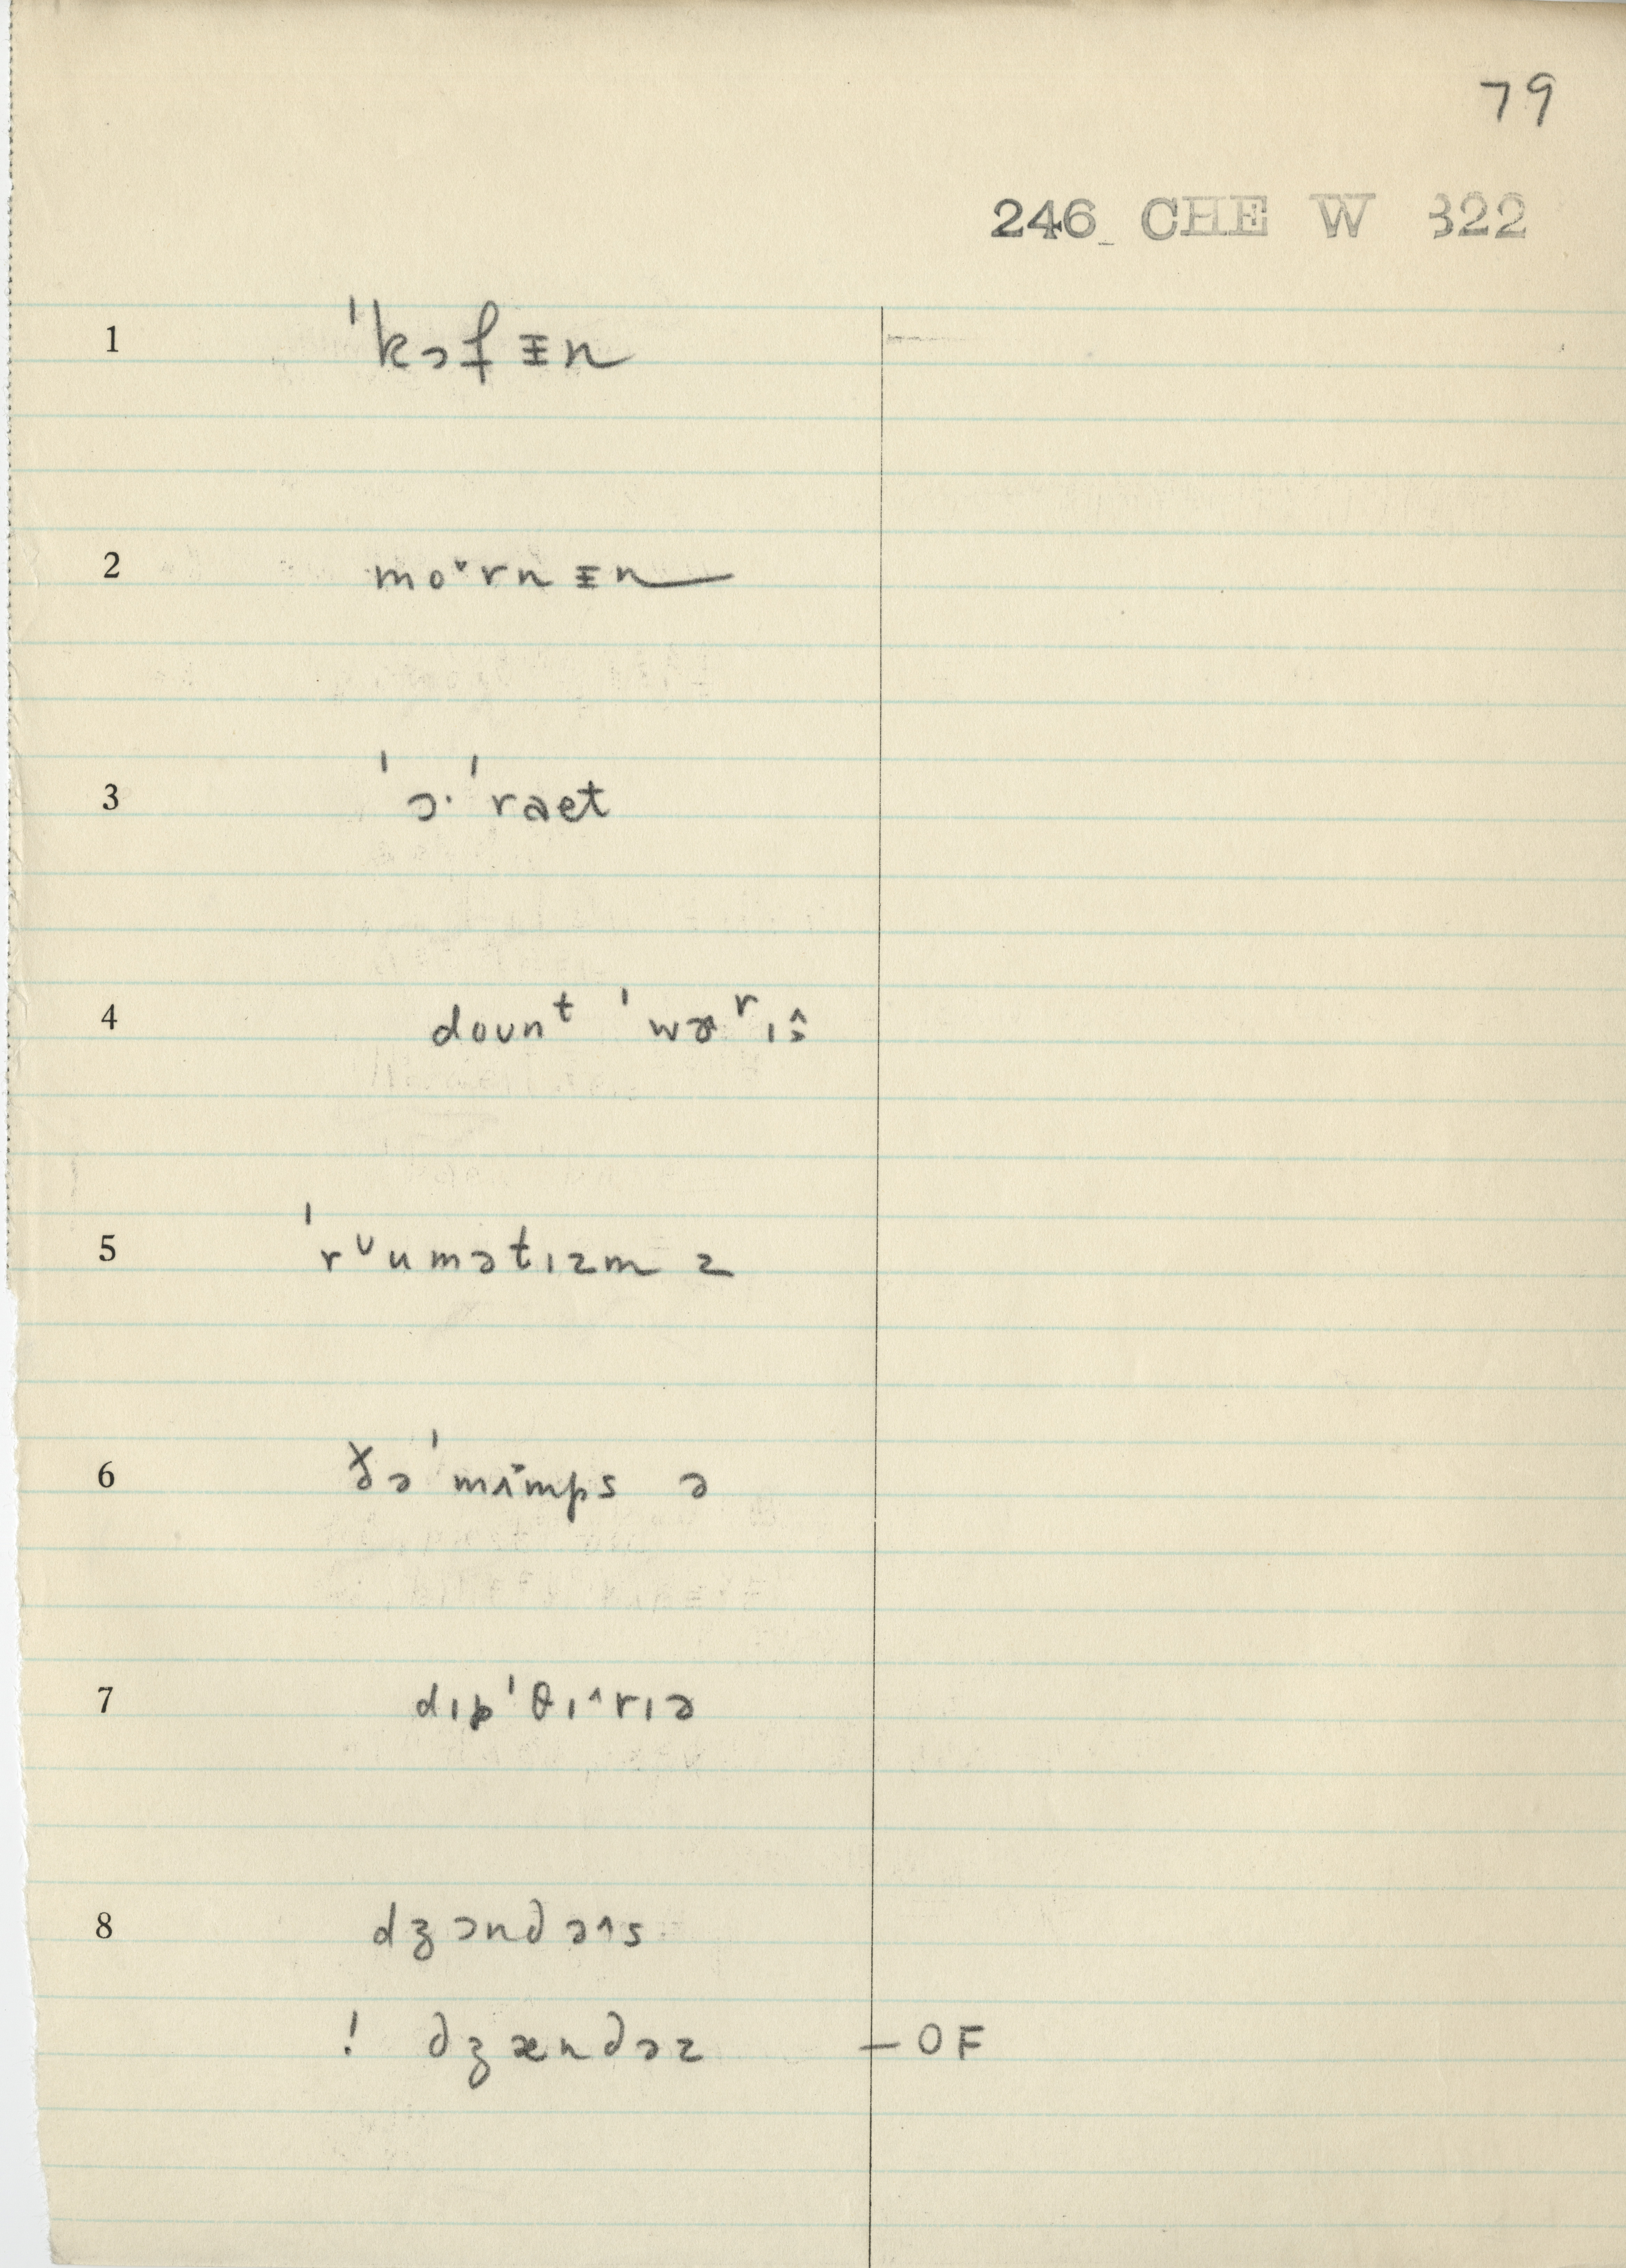 79
246 CHE W 322
1 ˈkɔfɪ̵n
2 moˇrnɪ̵n
3 ˈɔ·ˈraet
4 dounᵗ ˈwɚʳɪ
5 ˈrᶷumətɪzm z
6 ðəˈmʌmps ə
7 dɪpˈθɪ^rɪə
8 dʒɔndə^s
! dʒændəz – OF